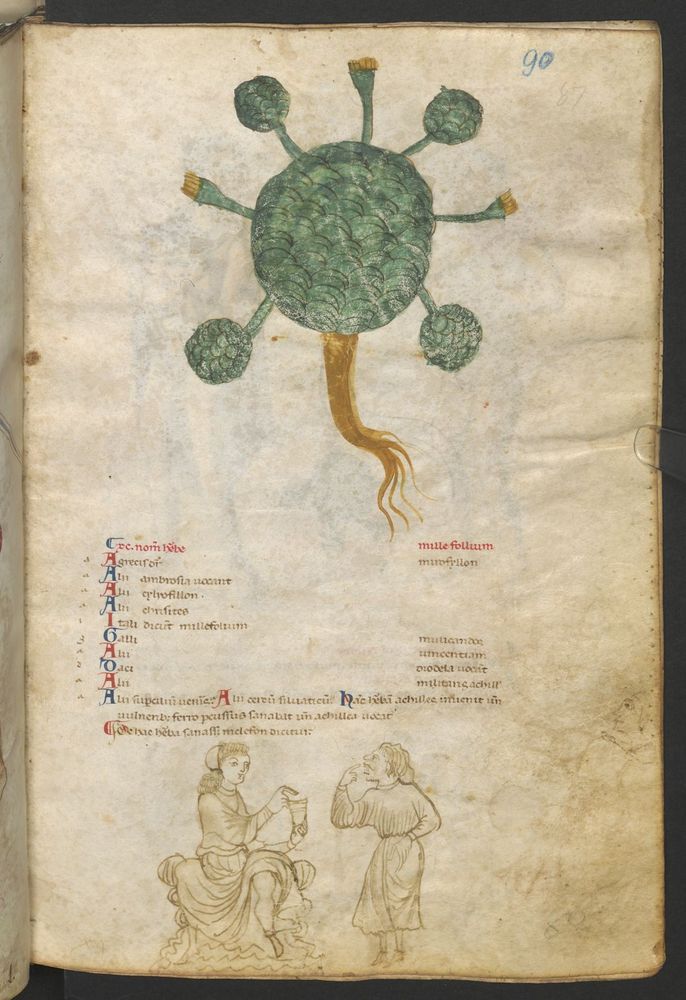 90
87
Croc. nom̄ hẽbe mille follium
Agrecis dr̄ mirofyllon
Alii ambrosia uocant
Alii
Alii crisites
Itali dicūt millefolium
Galli
Alii uincentiam
Daci diodela uocāt
Alii militaris achill'
Alii supciliū ueneris Alii cerou siluaticū. Hanc hẽbā achilles inuenit un̄
uulnera ferro pcussus sanabat un̄ achillea uocat'
De hac hẽba sanasse dicitur